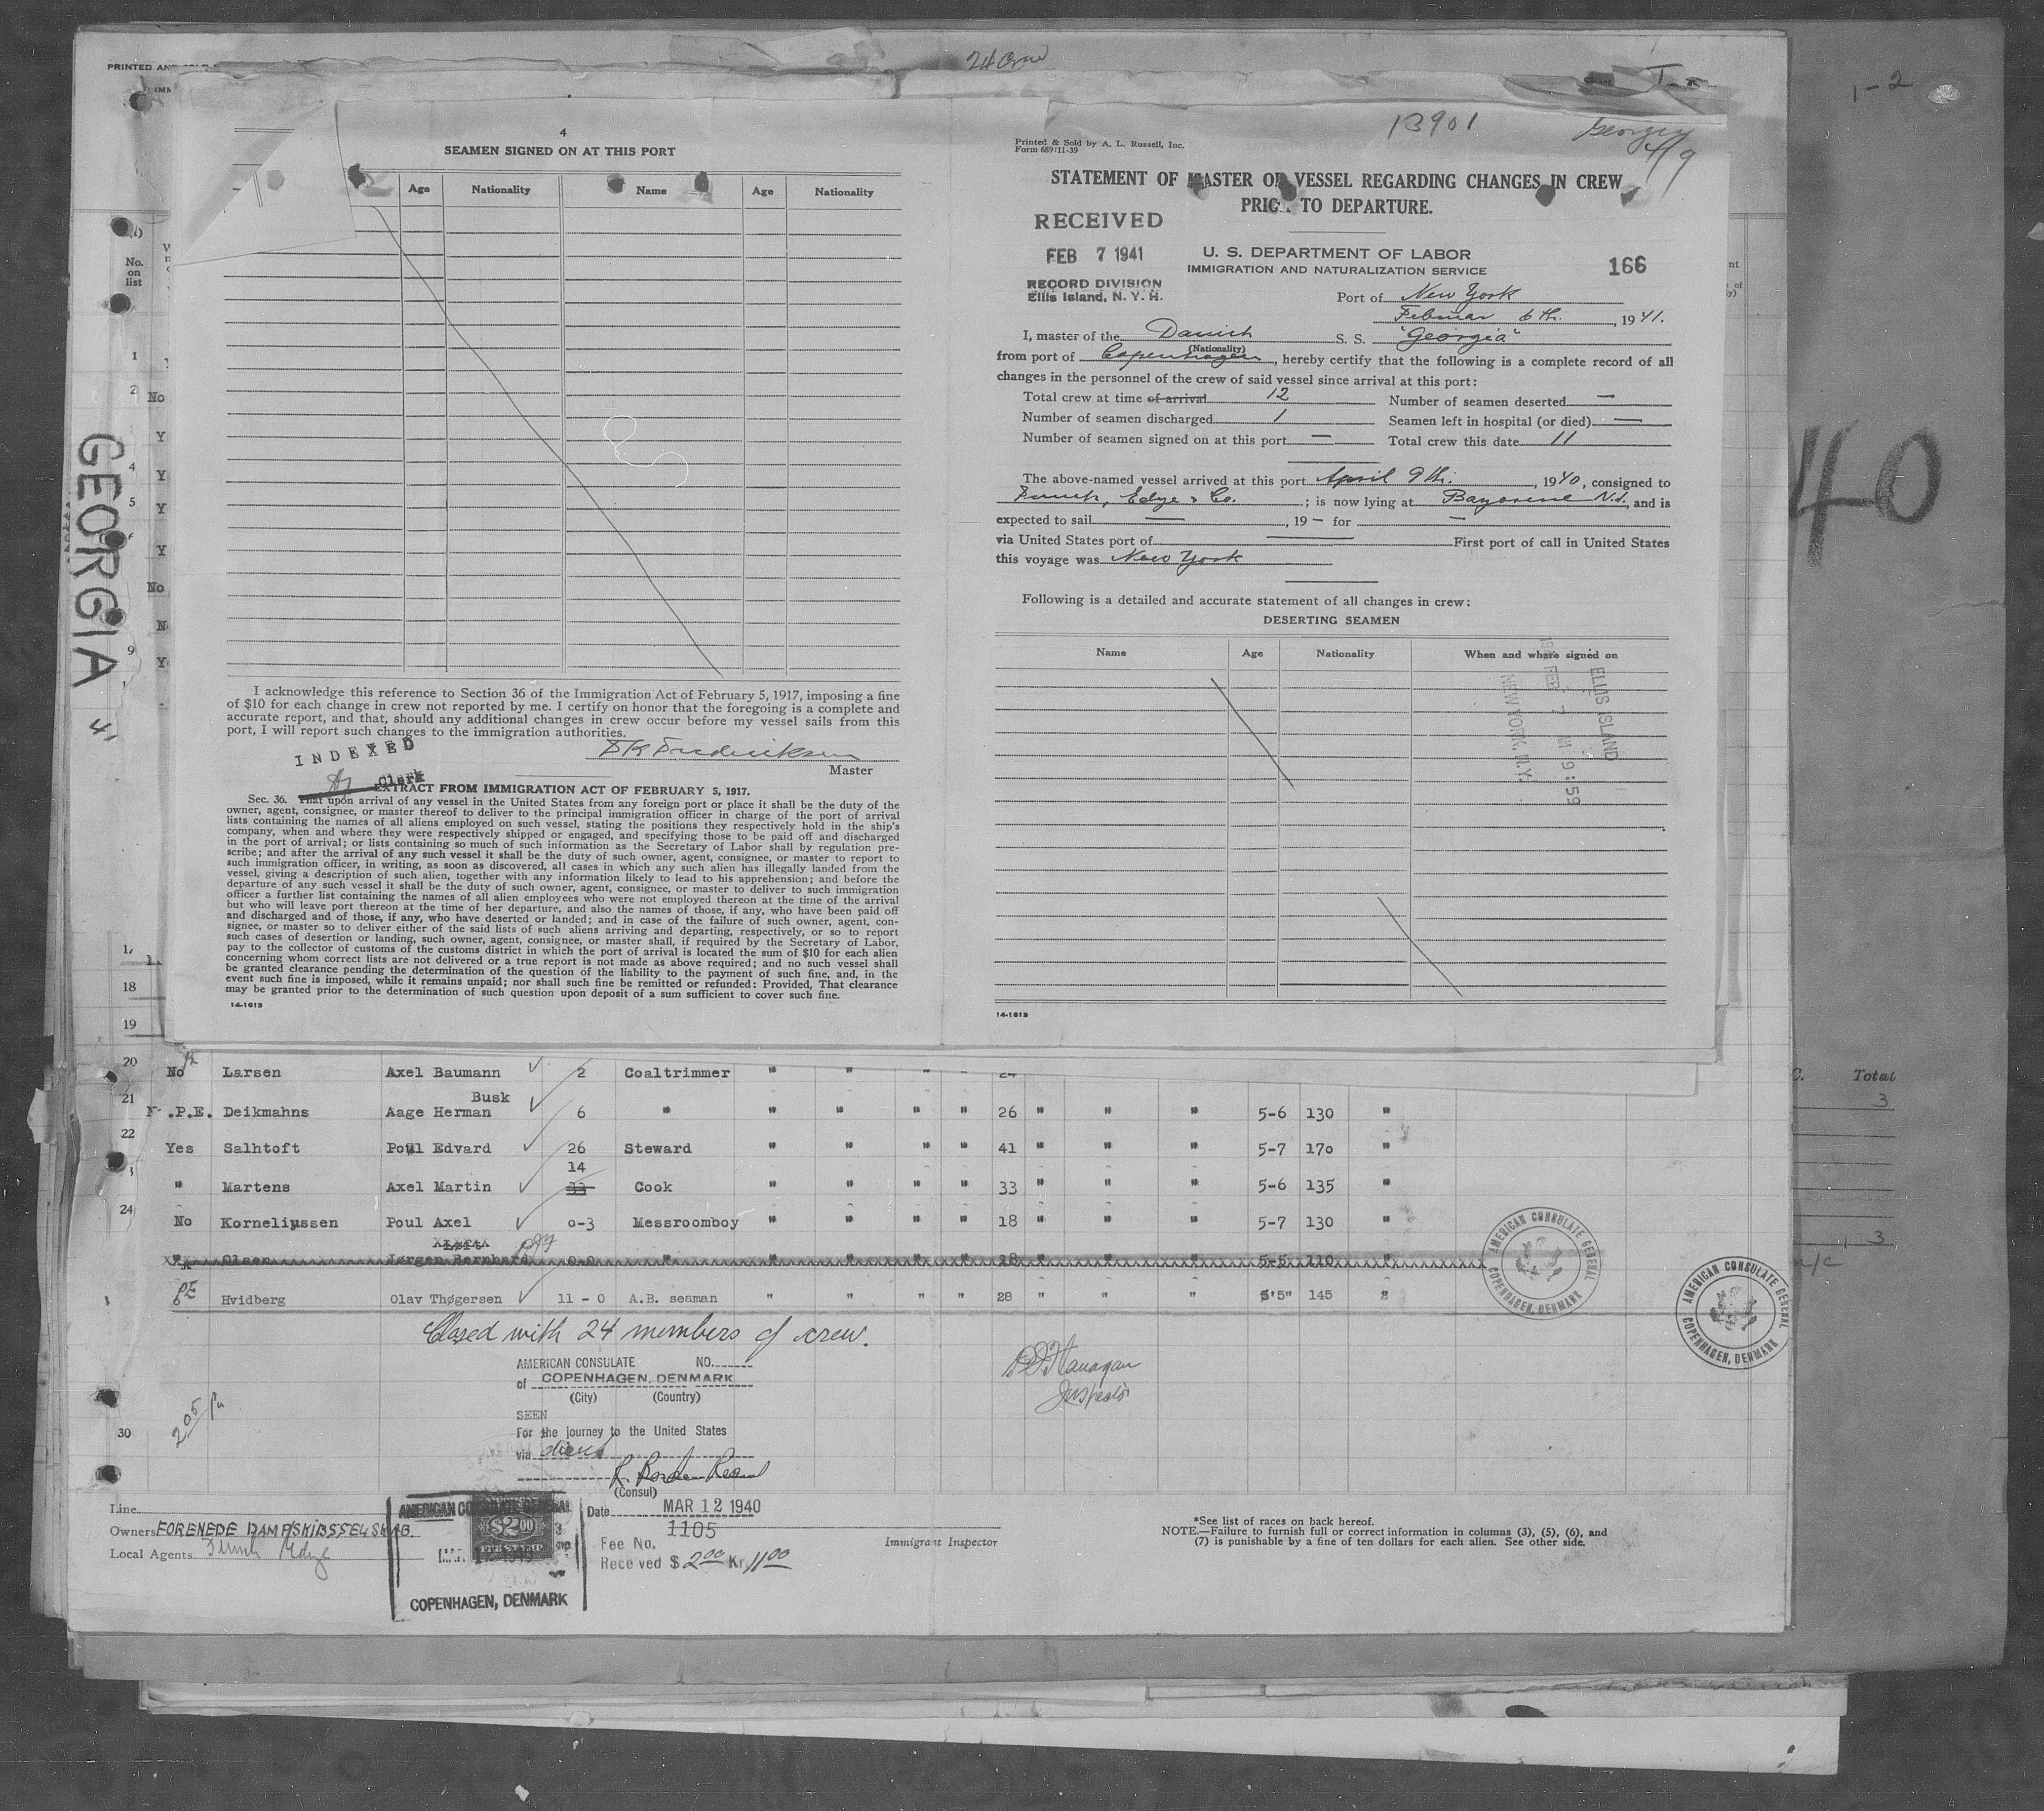 24 Crew
1-2
PRINTED AND SOLD
13901
Georgia
4/9
4
SEAMEN SIGNED ON AT THIS PORT
Age Nationality Name Age Nationality
I acknowledge this reference to Section 36 of the Immigration Act of February 5, 1917, imposing a fine
of $10 for each change in crew not reported by me. I certify on honor that the foregoing is a complete and
accurate report, and that, should any additional changes in crew occur before my vessel sails from this
port, I will report such changes to the immigration authorities.
INDEXED
Clerk
Master
EXTRACT FROM IMMIGRATION ACT OF FEBRUARY 5, 1917.
Sec. 36. That upon arrival of any vessel in the United States from any foreign port or place it shall be the duty of the
owner, agent, consignee, or master thereof to deliver to the principal immigration officer in charge of the port of arrival
lists containing the names of all aliens employed on such vessel, stating the positions they respectively hold in the ship's
company, when and where they were respectively shipped or engaged, and specifying those to be paid off and discharged
in the port of arrival; or lists containing so much of such information as the Secretary of Labor shall by regulation pre-
scribe; and after the arrival of any such vessel it shall be the duty of such owner, agent, consignee, or master to report to
such immigration officer, in writing, as soon as discovered, all cases in which any such alien has illegally landed from the
vessel, giving a description of such alien, together with any information likely to lead to his apprehension; and before the
departure of any such vessel it shall be the duty of such owner, agent, consignee, or master to deliver to such immigration
officer a further list containing the names of all alien employees who were not employed thereon at the time of the arrival
but who will leave port thereon at the time of her departure, and also the names of those, if any, who have been paid off
and discharged and of those, if any, who have deserted or landed; and in case of the failure of such owner, agent, con-
signee, or master so to deliver either of the said lists of such aliens arriving and departing, respectively, or so to report
such cases of desertion or landing, such owner, agent, consignee, or master shall, if required by the Secretary of Labor,
pay to the collector of customs of the customs district in which the port of arrival is located the sum of $10 for each alien
concerning whom correct lists are not delivered or a true report is not made as above required; and no such vessel shall
be granted clearance pending the determination of the question of the liability to the payment of such fine, and, in the
event such fine is imposed, while it remains unpaid; nor shall such fine be remitted or refunded: Provided, That clearance
may be granted prior to the determination of such question upon deposit of a sum sufficient to cover such fine.
14-1613
Printed & Sold by A. L. Russell, Inc.
Form 689:11-39
STATEMENT OF MASTER OF VESSEL REGARDING CHANGES IN CREW
PRIOR TO DEPARTURE.
RECEIVED
FEB 7 1941
RECORD DIVISION
Ellis Island, N. Y. H.
U. S. DEPARTMENT OF LABOR
IMMIGRATION AND NATURALIZATION SERVICE
166
Port of New York
Februar 6th. , 1941.
I, master of the Danish S. S. "Georgia"
(Nationality)
from port of Copenhagen, hereby certify that the following is a complete record of all
changes in the personnel of the crew of said vessel since arrival at this port:
Total crew at time of arrival 12 Number of seamen deserted —
Number of seamen discharged 1 Seamen left in hospital (or died) —
Number of seamen signed on at this port — Total crew this date 11
The above-named vessel arrived at this port April 9th. , 1940, consigned to
Funch, Edye & Co. ; is now lying at Bayonne N.J., and is
expected to sail — , 19 — for —
via United States port of — First port of call in United States
this voyage was New York
Following is a detailed and accurate statement of all changes in crew:
DESERTING SEAMEN
Name Age Nationality When and where signed on
ELLIS ISLAND
NEW YORK, N.Y.
14-1613
GEORGIA
No.
on
list
40
C. Total
3
3
18
19
20 No Larsen Axel Baumann 2 Coaltrimmer " " " " 24
Busk
21 .P.E. Deikmahns Aage Herman 6 " " " " " 26 " " " 5-6 130 "
22 Yes Salhtoft Poul Edvard 26 Steward " " " " 41 " " " 5-7 170 "
14
" Martens Axel Martin 33 Cook " " " " 33 " " " 5-6 135 "
24 No Korneliussen Poul Axel 0-3 Messroomboy " " " " 18 " " " 5-7 130 "
" Olsen Jørgen Bernhard 0-0 " " " " " 18 " " " 5-5 110 "
PE Hvidberg Olav Thøgersen 11 - 0 A.B. seaman " " " " 28 " " " 5'5" 145 "
Closed with 24 members of crew.
AMERICAN CONSULATE GENERAL
COPENHAGEN, DENMARK
AMERICAN CONSULATE GENERAL
COPENHAGEN, DENMARK
AMERICAN CONSULATE NO.
of COPENHAGEN, DENMARK
(City) (Country)
SEEN
For the journey to the United States
via direct
(Consul)
Inspector
30
Line
Owners FORENEDE DAMPSKIBSSELSKAB
Local Agents Funch Edye
AMERICAN CONSULATE GENERAL
$2.00
FEE STAMP
COPENHAGEN, DENMARK
Date MAR 12 1940
1105
Fee No.
Received $ 2.00 Kr. 11.00
Immigrant Inspector
*See list of races on back hereof.
NOTE.—Failure to furnish full or correct information in columns (3), (5), (6), and
(7) is punishable by a fine of ten dollars for each alien. See other side.